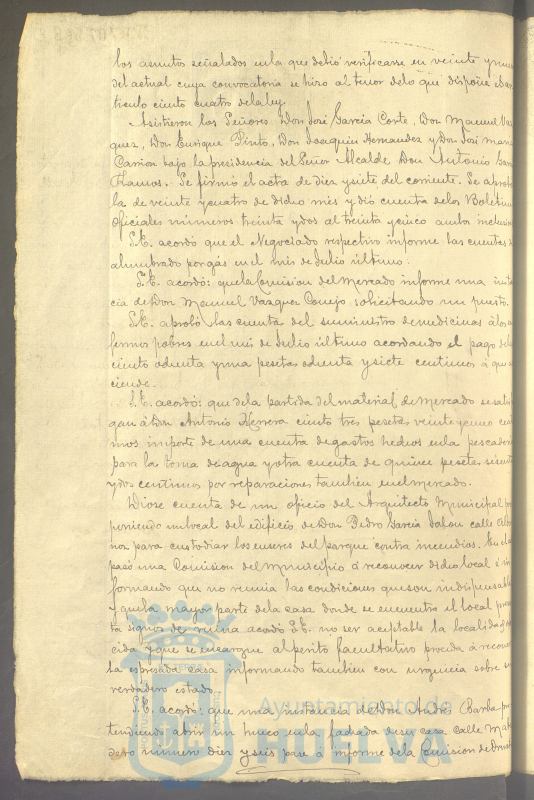 los asuntos señalados en la que debió verificarse en veinte y nueve
del actual cuya convocatoria se hizo al tenor de lo que dispone el ar
tículo ciento cuatro de la ley.
Asistieron los Señores Don José García Corte, Don Manuel Váz
quez, Don Enrique Pinto, Don Joaquin Hernandez y Don José Maria
Carrion bajo la presidencia del Señor Alcalde Don Antonio Garc
Ramos. Se firmó el acta de diez y siete del corriente. Se aprobó
la de veinte y cuatro de dicho mes y dió cuenta de los Boletines
Oficiales números treinta y dos al treinta y cinco ambos inclusive
S.E. acordó que el Negociado respectivo informe las cuentas de
alumbrado por gas en el mes de Julio último:
S.E. acordó: que la Comision del Mercado informe una instan
cia de Don Manuel Vazquez Conejo solicitando un puesto.
S.E. aprobó las cuenta del suministro de medicinas á los en
fermos pobres en el mes de Julio último acordando el pago de las
ciento ochenta y una pesetas ochenta y siete centimos á que as
ciende.
S.E. acordó: que de la partida del material de Mercado se satis
gan á Don Antonio Herrera ciento tres pesetas veinte y cinco cen
timos importe de una cuenta de gastos hechos en la pescaderia
para la toma de agua y otra cuenta de quince pesetas sesenta
y dos centimos por reparaciones tambien en el mercado.
Diose cuenta de un oficio del Arquitecto Municipal pro
poniendo un local del edificio de Don Pedro Garcia Jalon calle
nos para custodiar los enseres del parque contra incendios. En el
pasó una Comision del Municipio á reconocer dicho local é in
formando que no reunia las condiciones que son indispensables
y que la mayor parte de la casa donde se encuentra el local presen
ta signos de ruina acordó S.E. no ser aceptable la localidad ofre
cida y que se encargue al perito facultativo proceda á reconocer
la espresada casa informando tambien con urgencia sobre su
verdadero estado.
S.E. acordó: que una instancia de Don Andres Barba pre
tendiendo abrir un hueco en la fachada de su casa calle Mata
dero número diez y seis pase á informe de la Comision de Ornato
Ayuntamiento de
HUELVA